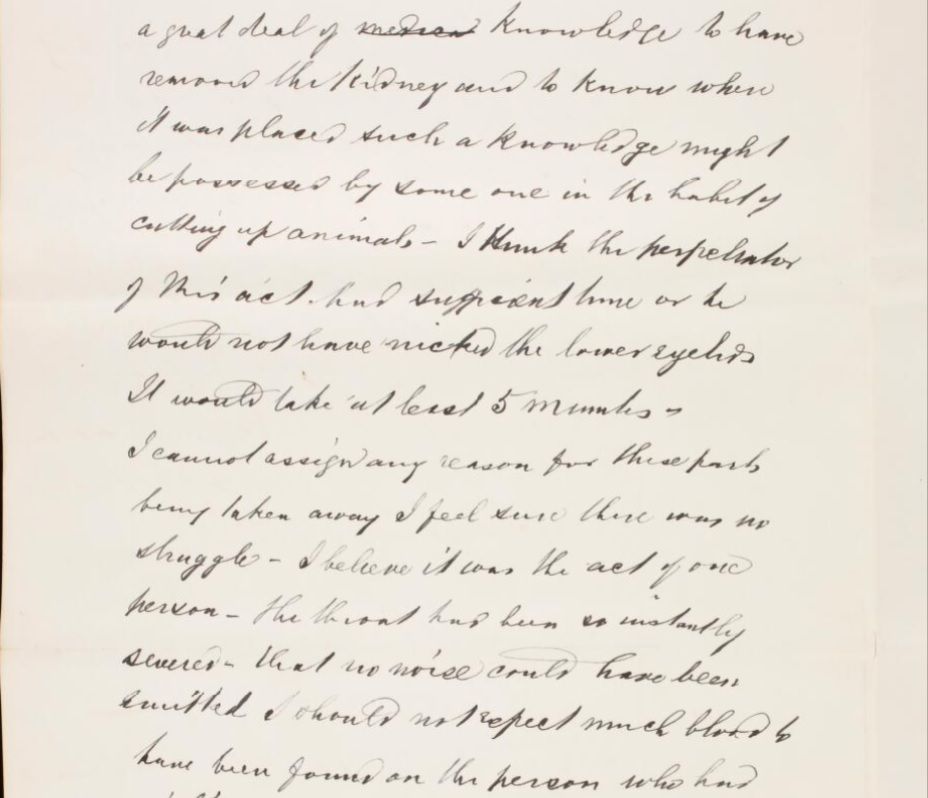 a great deal of medical knowledge to have
removed the kidney and to know where
it was placed such a knowledge might
be possessed by some one in the habit of
cutting up animals – I think the perpetrator
of this act had sufficient time or he
would not have nicked the lower eyelids
It would take at least 5 minutes –
I cannot assign any reason for these parts
being taken away I feel sure there was no
struggle – I believe it was the act of one
person – the throat had been so instantly
severed – that no noise could have been
emitted I should not expect much blood to
have been found on the person who had